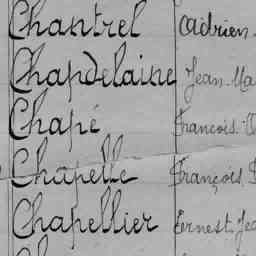 Chantrel Adrien
Chapdelaine Jean Ma
Chapé Francois
Chapelle François
Chapellier Ernest Je